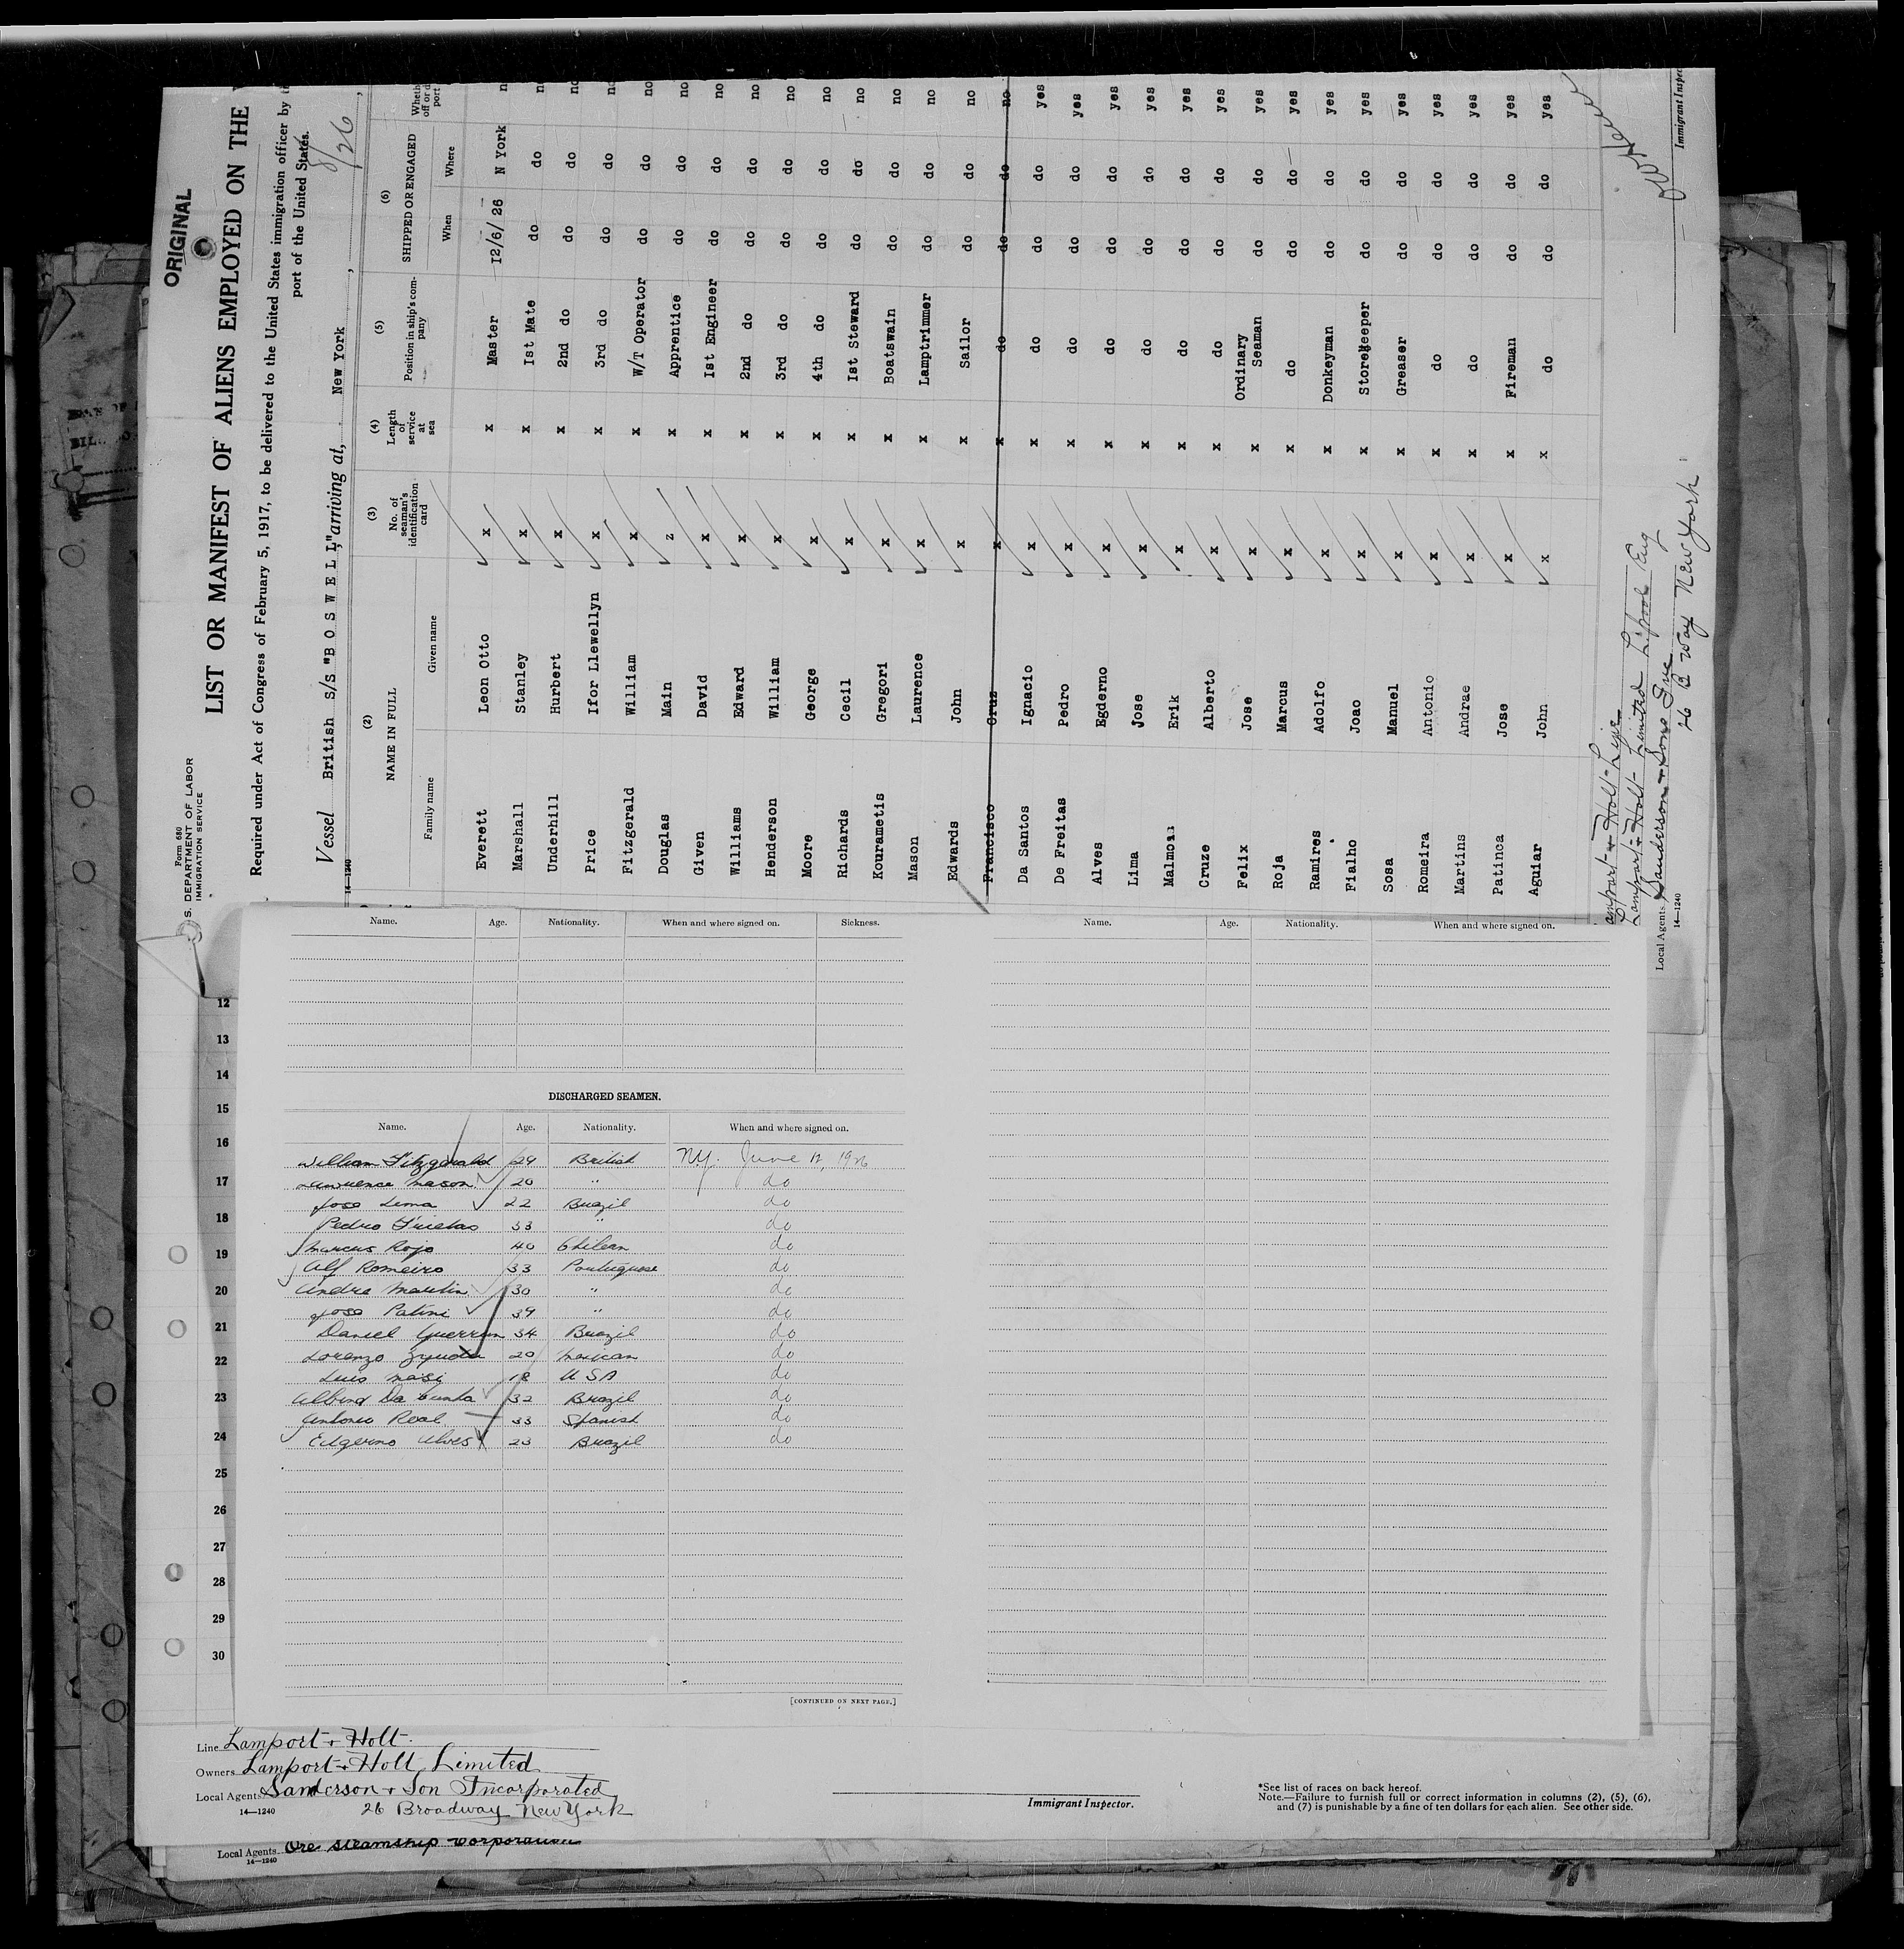 ORIGINAL
Form 680
S. DEPARTMENT OF LABOR
IMMIGRATION SERVICE
LIST OR MANIFEST OF ALIENS EMPLOYED ON THE
Required under Act of Congress of February 5, 1917, to be delivered to the United States immigration officer by
port of the United States.
Vessel British s/s "B O S W E L L", arriving at, New York,
14—1240
(2) (3) (4) (5) (6)
NAME IN FULL No. of seaman's identification card Length of service at sea Position in ship's company SHIPPED OR ENGAGED
Family name Given name When Where
Everett Leon Otto x x Master 12/6/26 N York
Marshall Stanley x x 1st Mate do do
Underhill Hurbert x x 2nd do do do
Price Ifor Llewellyn x x 3rd do do do
Fitzgerald William x x W/T Operator do do no
Douglas Main z x Apprentice do do no
Given David x x 1st Engineer do do no
Williams Edward x x 2nd do do do no
Henderson William x x 3rd do do do no
Moore George x x 4th do do do no
Richards Cecil x x 1st Steward do do no
Kourametis Gregori x x Boatswain do do no
Mason Laurence x x Lamptrimmer do do no
Edwards John x x Sailor do do no
Francisco Cruz x x do do do no
Da Santos Ignacio x x do do do yes
De Freitas Pedro x x do do do yes
Alves Egderno x x do do do yes
Lima Jose x x do do do yes
Malmoin Erik x x do do do yes
Cruze Alberto x x do do do yes
Felix Jose x x Ordinary Seaman do do yes
Roja Marcus x x do do do yes
Ramires Adolfo x x Donkeyman do do yes
Fialho Joao x x Storekeeper do do yes
Sosa Manuel x x Greaser do do yes
Romeira Antonio x x do do do yes
Martins Andrae x x do do do yes
Patinca Jose x x Fireman do do yes
Aguiar John x x do do do yes
Lamport + Holt Line
Lamport + Holt Limited L'pool Eng
Local Agents Sanderson + Sons Inc
26 B way New York
14—1240
Immigrant Inspec
Name. Age. Nationality. When and where signed on. Sickness.
Name. Age. Nationality. When and where signed on.
12
13
14
15
16
17
18
19
20
21
22
23
24
25
26
27
28
29
30
DISCHARGED SEAMEN.
Name. Age. Nationality. When and where signed on.
William Fitzgerald 24 British N.Y. June 12, 1926
Lawrence Mason 20 " do
Jose Lima 22 Brazil do
Pedro Frietas 33 " do
Marcus Rojo 40 Chilean do
Alf Romeiro 33 Portuguese do
Andre Martin 30 " do
Jose Patini 39 " do
Daniel Guerran 34 Brazil do
Lorenzo 20 Mexican do
Luis Masi 18 U S A do
Albino Da Cunha 32 Brazil do
Antonio Real 33 Spanish do
Edgerino Alves 23 Brazil do
[CONTINUED ON NEXT PAGE.]
Line Lamport + Holt
Owners Lamport + Holt Limited
Local Agents Sanderson + Son Incorporated
14—1240 26 Broadway New York
Immigrant Inspector.
*See list of races on back hereof.
Note.—Failure to furnish full or correct information in columns (2), (5), (6),
and (7) is punishable by a fine of ten dollars for each alien. See other side.
Local Agents Ore Steamship Corporation
14—1240